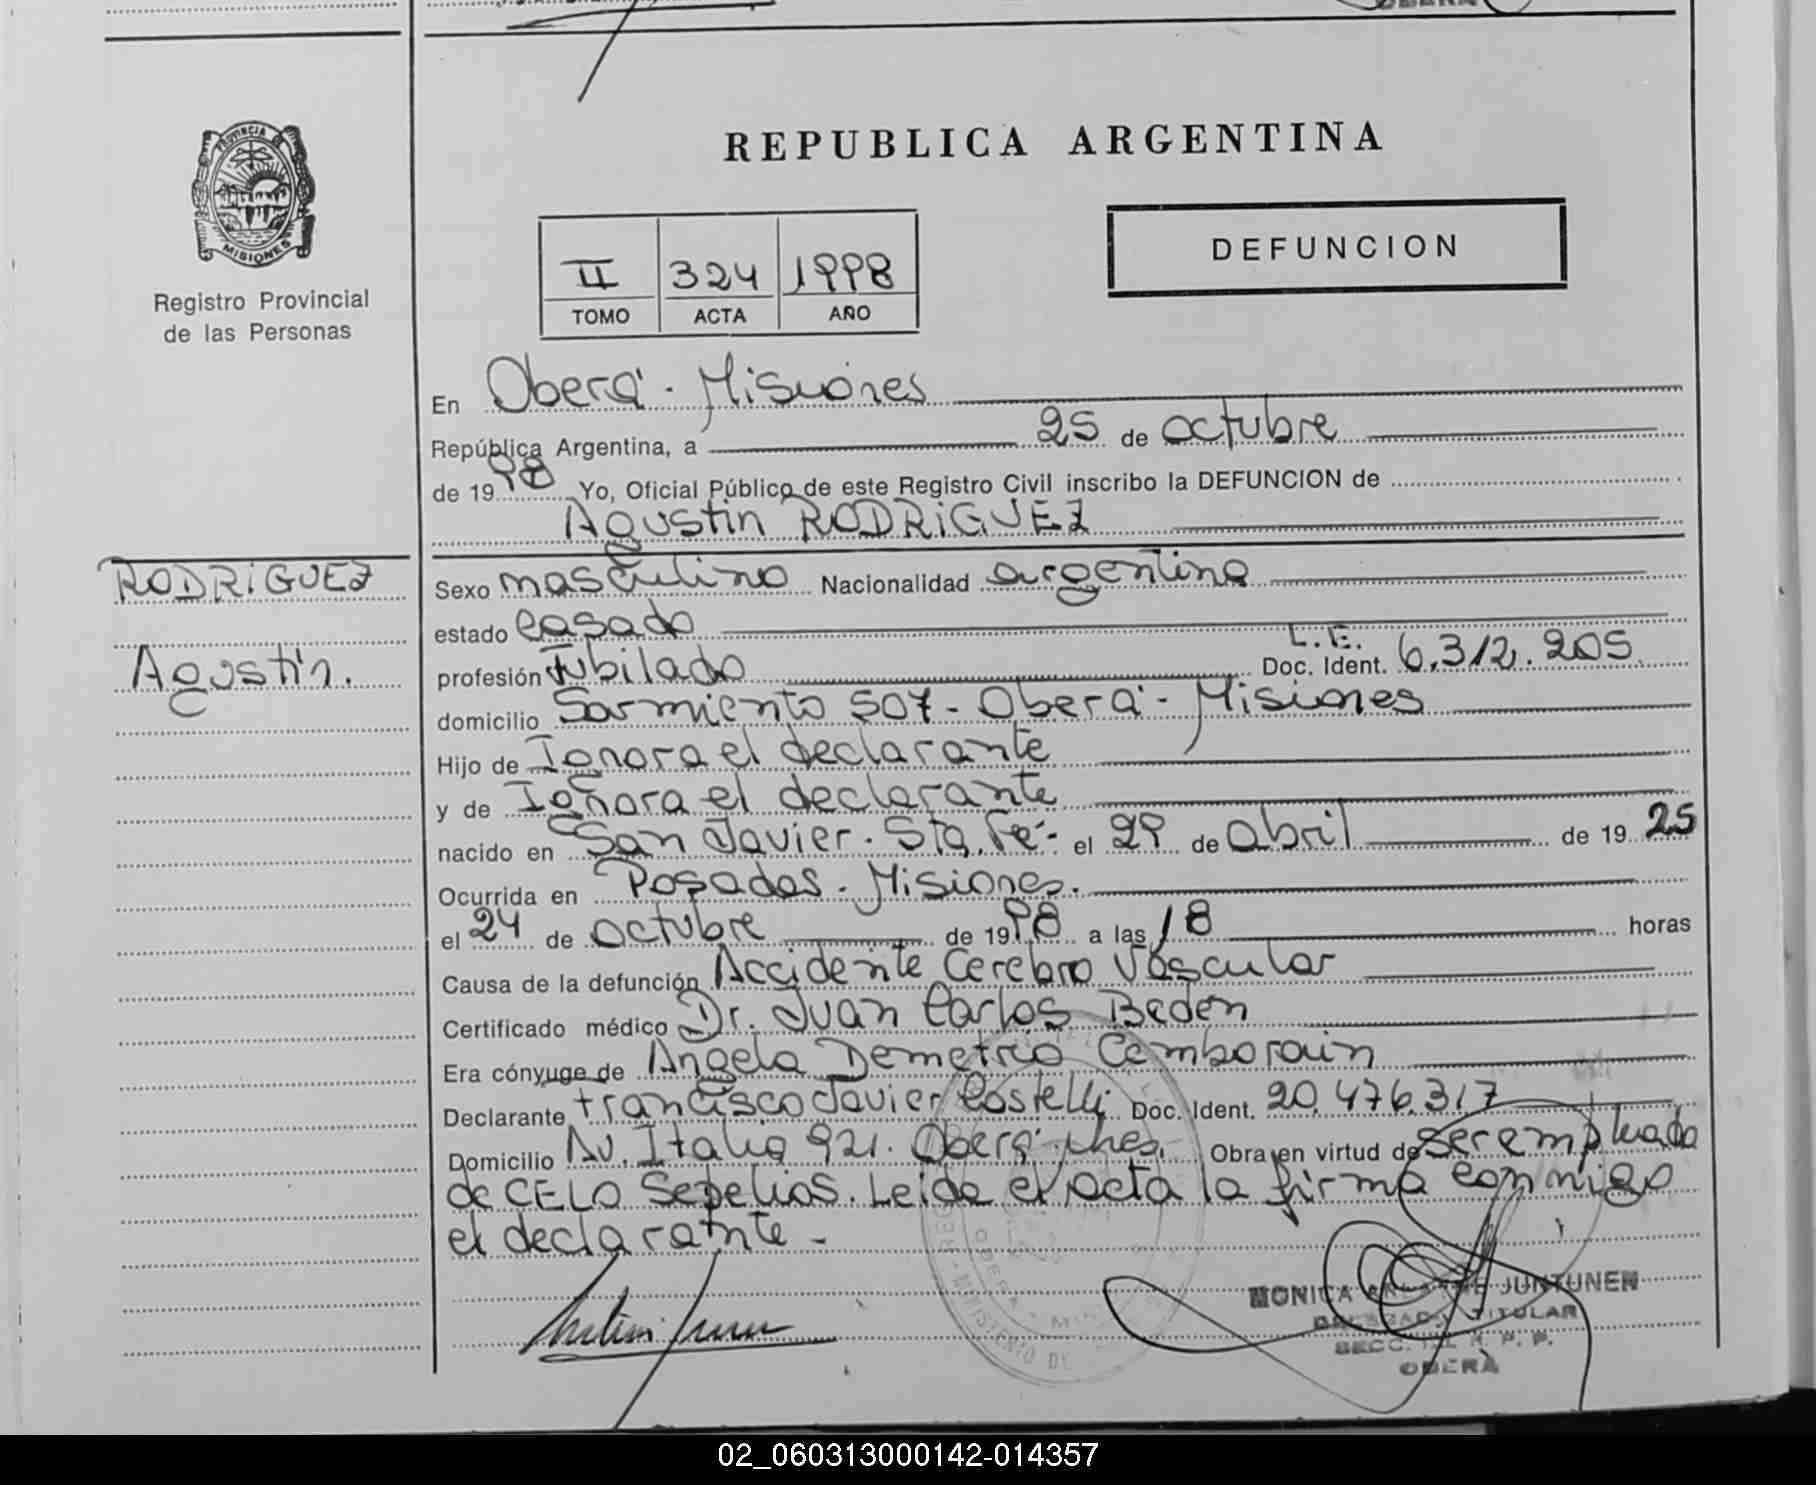 REPUBLICA ARGENTINA
PROVINCIA DE
MISIONES
Registro Provincial
de las Personas
II 324 1998
TOMO ACTA AÑO
DEFUNCION
En Oberá - Misiones
República Argentina, a 25 de octubre
de 19 98 Yo, Oficial Público de este Registro Civil inscribo la DEFUNCION de
Agustin RODRIGUEZ
RODRIGUEZ
Agustín.
Sexo masculino Nacionalidad argentina
estado casado
profesión Jubilado L.E. Doc. Ident. 6.312.205
domicilio Sarmiento 507 - Oberá - Misiones
Hijo de Ignora el declarante
y de Ignora el declarante
nacido en San Javier - Sta. Fé - el 29 de abril de 19 25
Ocurrida en Posadas - Misiones.
el 24 de octubre de 19 98 a las 18 horas
Causa de la defunción Accidente Cerebro Vascular
Certificado médico Dr. Juan Carlos Beden
Era cónyuge de Angela Demetria Cemborain
Declarante Francisco Javier Costelli Doc. Ident. 20.476.317
Domicilio Av. Italia 921. Oberá - Mnes. Obra en virtud de ser empleado
de CELO Sepelios. Leida el acta la firma conmigo
el declarante -
MONICA JUNTUNEN
TITULAR
SECC. R. P. P.
OBERÁ
MINISTERIO DE
02_060313000142-014357